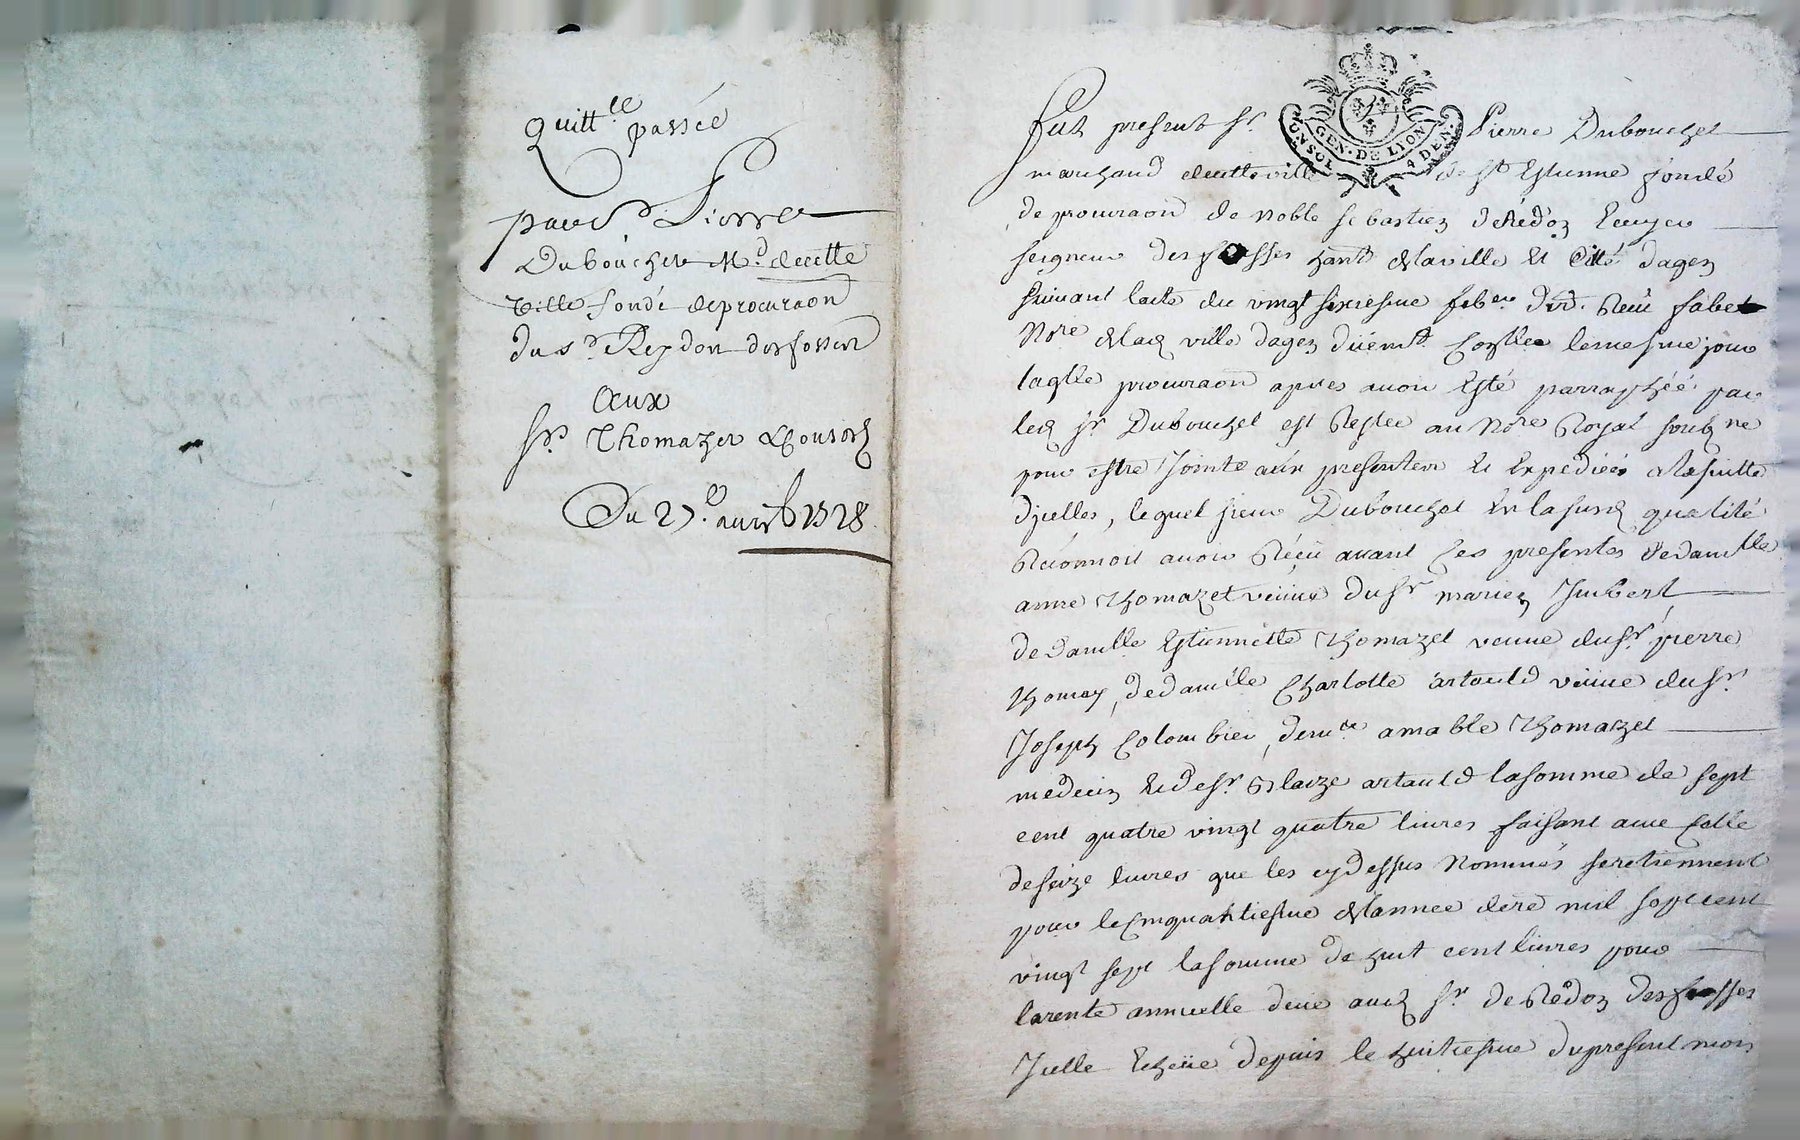 Quitt.ce
passée
par Sr. Pierre
Dubouchet Md. de cette
Ville fondé de procuraon
du Sr. Reydon desfosses
aux
Srs. Thomazet & Consorts
Du 27.e avril 1728
Fut present Sr. Pierre Dubouchet
marchand de cette ville de St Estienne fondé
de procuraon de noble sebastien deRédon Ecuyer
seigneur des fosses hant de la ville et Cité dagen
suivant lacte du vingt sixiesme feb.er Receu fabet
Nore de lad ville dagen duemt. Conllee le mesme jour
laqlle procuraon apres avoir Esté parraphéé par
led sr Dubouchet est Restee au Nore Royal soubzne
pour estre Jointe aux presentes et Expediéé a la suitte
dicelles, lequel sieur Dubouchet En lasusd qualité
Reconnoit avoir Réçu avant Ces presentes de damlle
anne thomazet veuve du Sr marien Jmbert
de damlle Estiennette Thomazet veuve du sr. pierre
thomas, de damlle Charlotte artauld veuve du sr
Joseph Colombier, de me amable Thomazet
medecin Et de sr. Blaize artauld la somme de sept
cent quatre vingt quatre livres faisant avec Celle
de seize livres que les cy dessus Nommés se retiennent
pour le Cinquantiesme de lannee derre mil sept cent
vingt sept la somme de huit cent livres pour
la rente annuelle deue aud sr. de Rédon des fosses
Jcelle Echeüe depuis le huitiesme du present mois
GEN. DE LION
4 DEN.